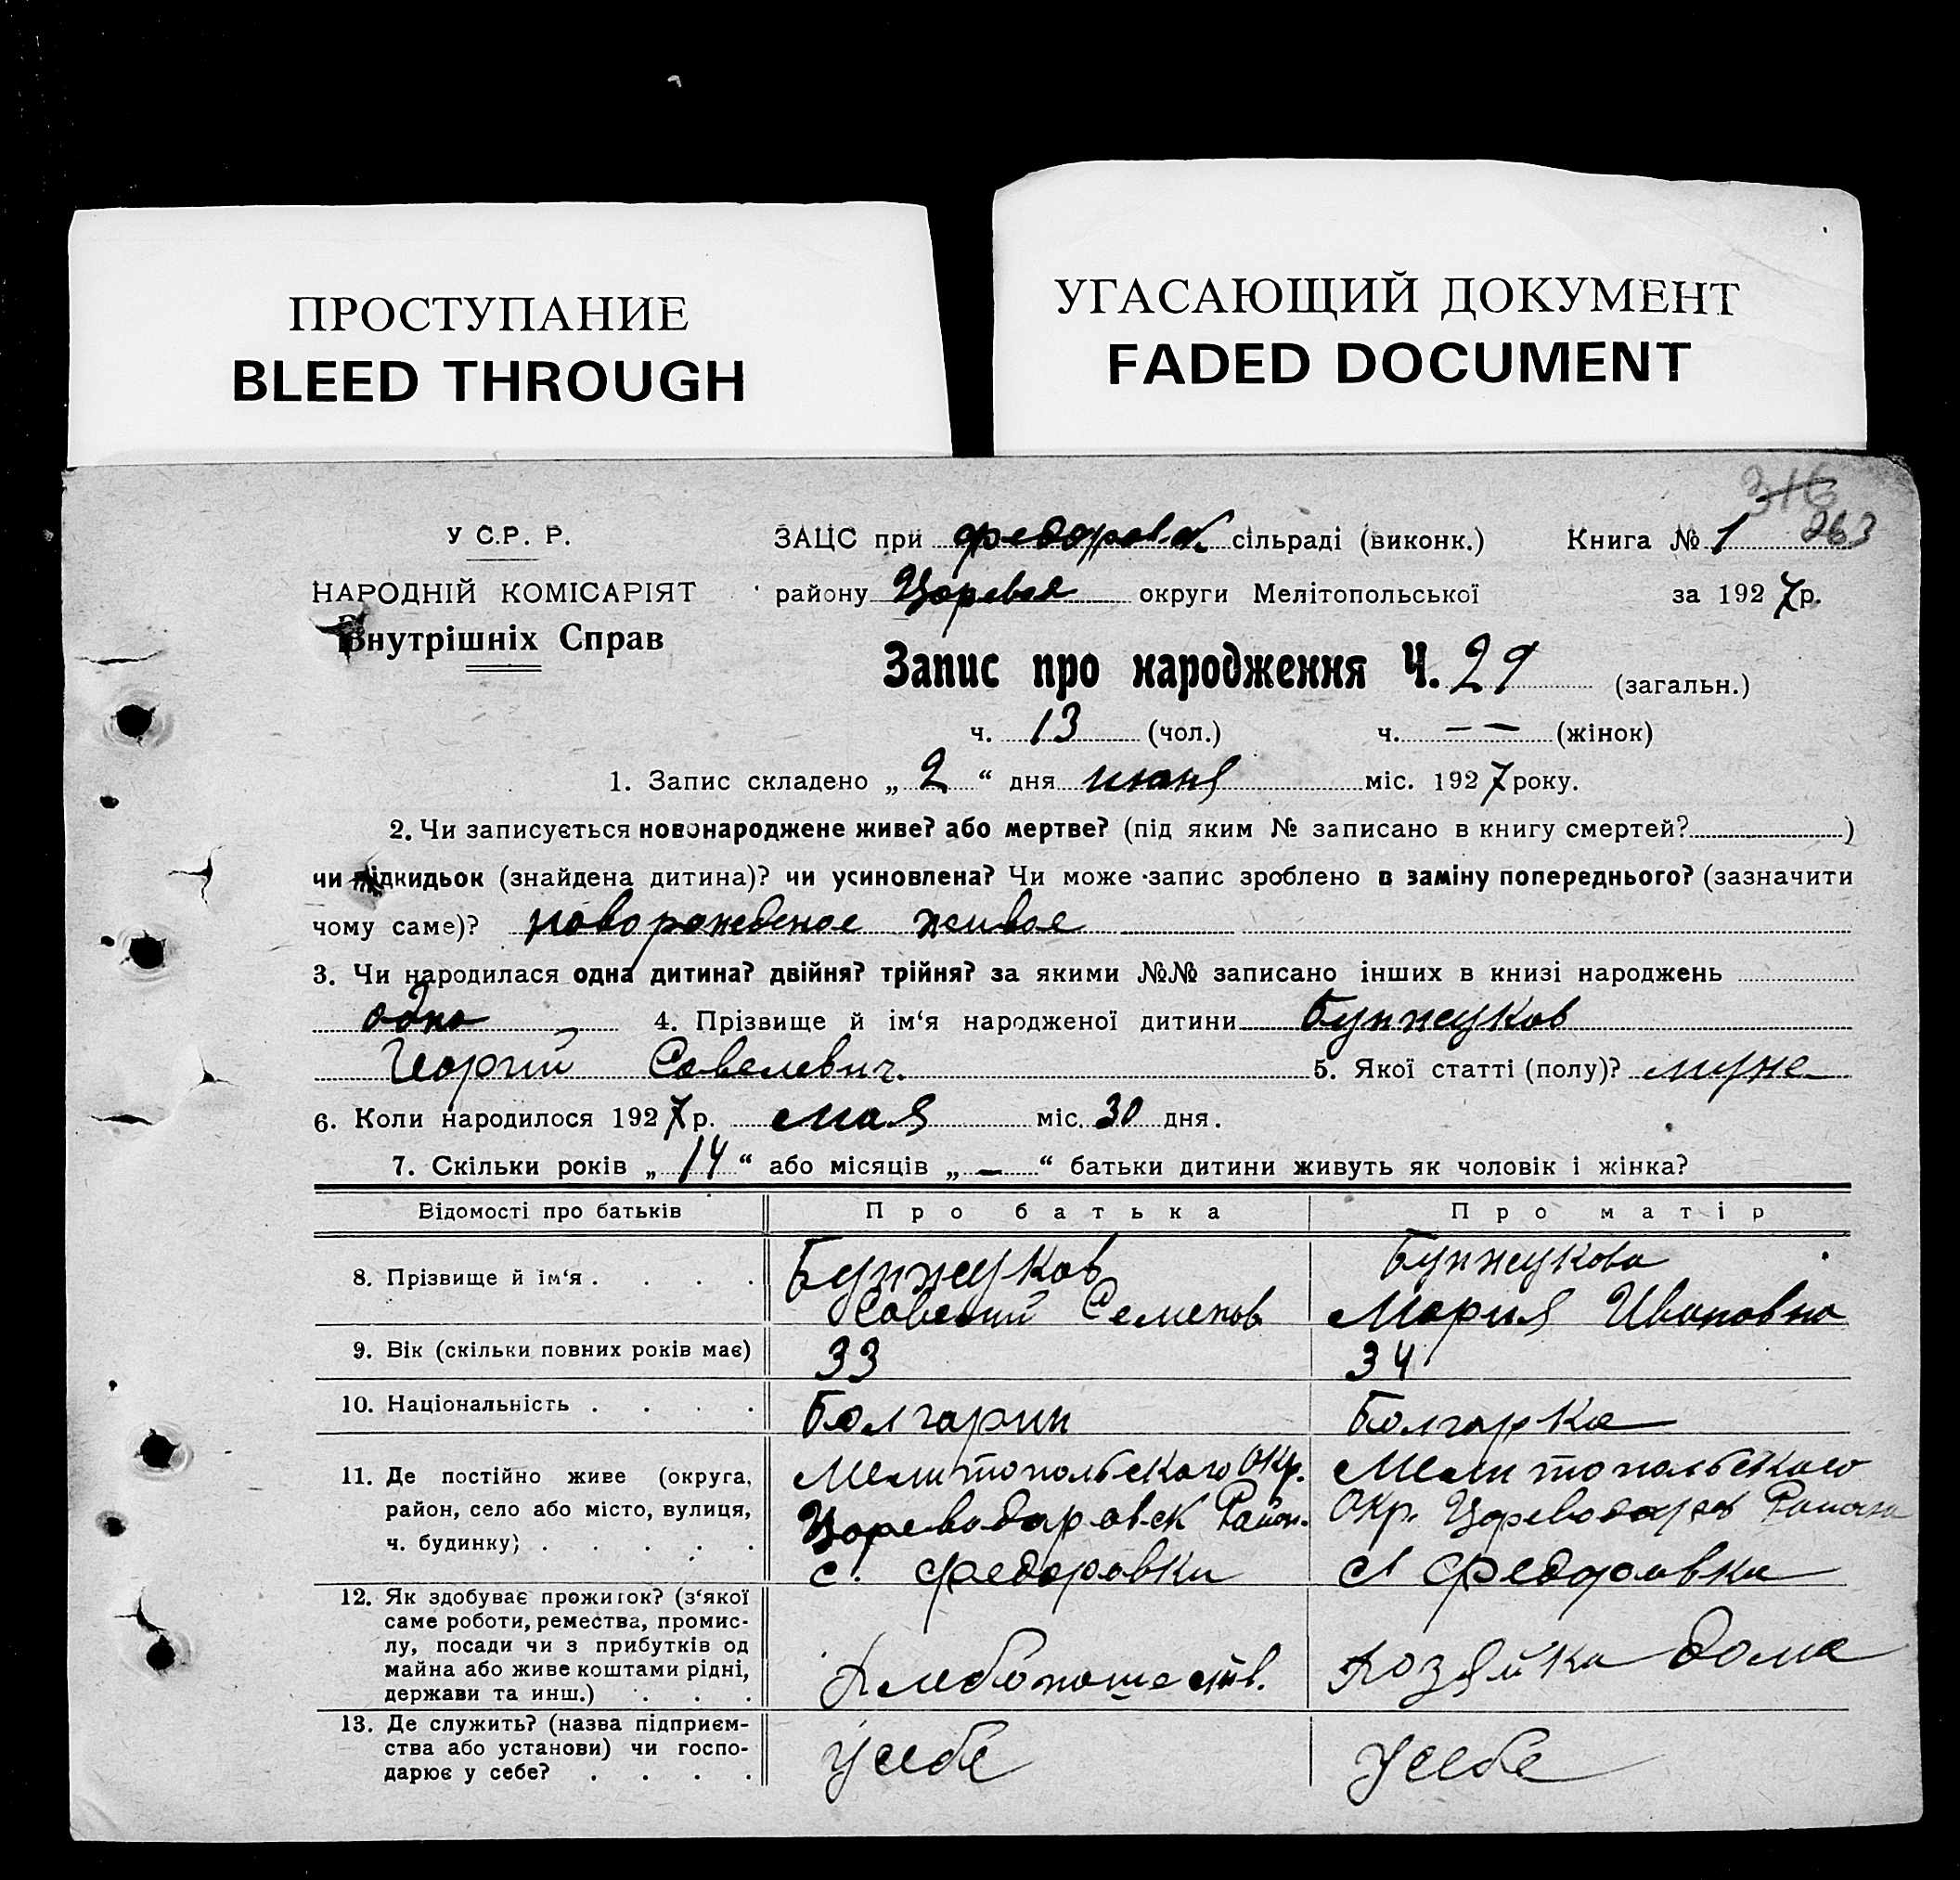 ПРОСТУПАНИЕ
BLEED THROUGH
УГАСАЮЩИЙ ДОКУМЕНТ
FADED DOCUMENT
316
263
У С.Р. Р.
НАРОДНІЙ КОМІСАРІЯТ
Внутрішніх Справ
ЗАЦС при Федоровск. сільраді (виконк.) Книга № 1
району Царевод округи Мелітопольської за 1927 р.
Запис про народження Ч. 29 (загальн.)
ч. 13 (чол.) ч. — — (жінок)
1. Запис складено „ 2 “ дня июня міс. 1927 року.
2. Чи записується новонароджене живе? або мертве? (під яким № записано в книгу смертей? )
чи підкидьок (знайдена дитина)? чи усиновлена? Чи може запис зроблено в заміну попереднього? (зазначити
чому саме)? новорожденое живое
3. Чи народилася одна дитина? двійня? трійня? за якими №№ записано інших в книзі народжень
одно 4. Прізвище й ім‘я народженої дитини Бунжуков
Георгий Савелевич. 5. Якої статті (полу)? муж.
6. Коли народилося 1927 р. мая міс. 30 дня.
7. Скільки років „ 14 “ або місяців „ — “ батьки дитини живуть як чоловік і жінка?
Відомості про батьків Про батька Про матір
8. Прізвище й ім‘я . . . . Бунжуков Савелий Семенов Бунжукова Мария Ивановна
9. Вік (скільки повних років має) 33 34
10. Національність . . . . Болгарин Болгарка
11. Де постійно живе (округа, Мелитопольского Окр. Мелитопольского
район, село або місто, вулиця, Цареводаровск Район. Окр. Цареводаров Района
ч. будинку) . . . . . с. Федоровки с Федоровки
12. Як здобуває прожиток? (з‘якої
саме роботи, ремества, промис-
лу, посади чи з прибутків од
майна або живе коштами рідні, Хлебопашеств. хозяйка дома
держави та инш.) . . .
13. Де служить? (назва підприєм-
ства або установи) чи госпо- У себе У себе
дарює у себе? . . . .